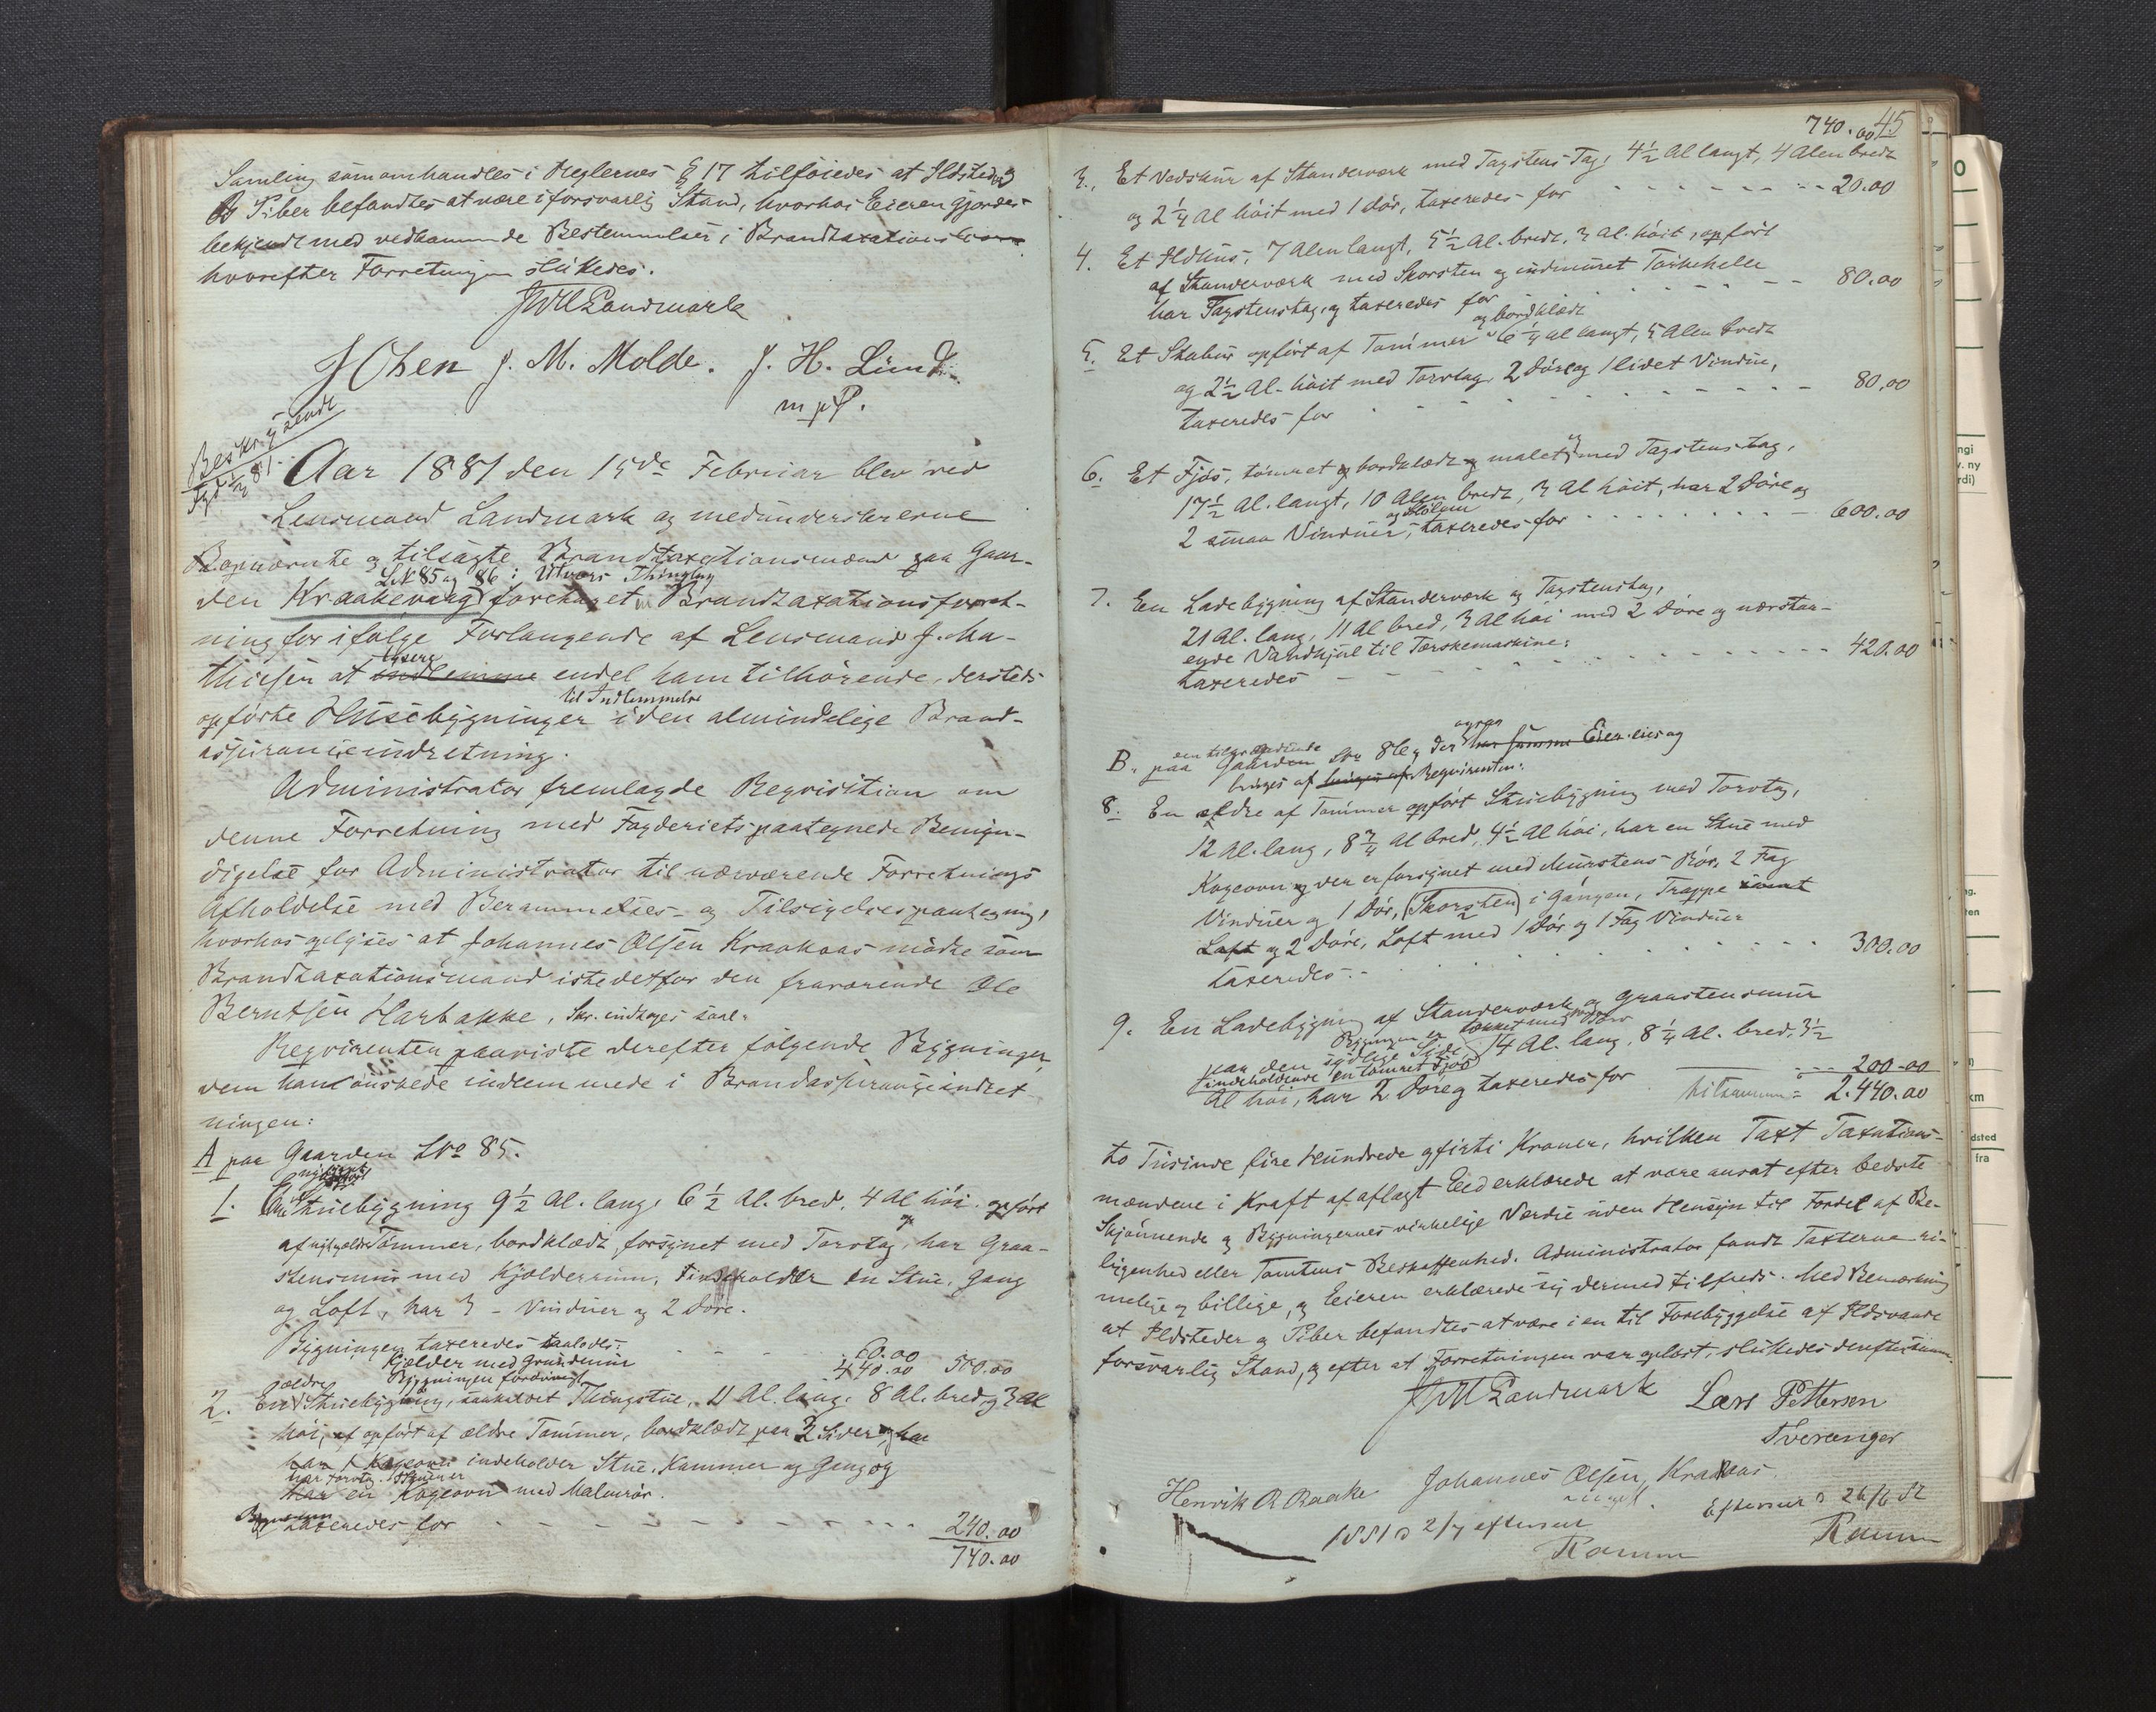 Samling som omhandles i Reglernes § 17 tilföiedes at Ildsteder
og Piber befandtes at være i forsvarlig Stand, hvorhos Eieren gjordes
bekjendt med vedkommende Bestemmelser i Brandtaxationsloven
hvorefter Forretningen sluttedes.
JWLandmark
J Olsen J. M. Molde. J. H. Lund
m p P.
Beskr. 4 sendt
Fgd 1/3 81.
Aar 1881 den 15de Februar blev ved
Lensmand Landmark og medunderskrevne
opnævnte og tilsagte Brandtaxationsmænd paa Gaar-
LN 85 og 86 i Utvær Thinglag
den Kraakevaag foretaget en Brandtaxationsforret-
ning for ifølge Forlangende af Lensmand J. Ma-
taxere
thiesen at indlemme endel ham tilhörende, dersteds
til Indlemmelse
opförte Husebygninger i den almindelige Brand-
assuranceindretning.
Administrator fremlagde Reqvisition om
denne Forretning med Fogderiets paategnede Bemyn-
digelse for Administrator til nærværende Forretnings
Afholdelse med Berammelses- og Tilsigelsespaategning,
hvorhos oplyses at Johannes Olsen Kraakaas mödte som
Brandtaxationsmand istedetfor den fraværende Ole
Berntsen Harbakke, Skr. indtages saal:
Reqvirenten paaviste derefter fölgende Bygninger
dem han önskede indlemmede i Brandassuranceindret-
ningen:
A paa Gaarden LNo 85.
nyopfört
1. En Stuebygning 9½ Al. lang, 6½ Al. bred, 4 Al höi. opfört
af nyt og ældre Tömmer, bordklædt, forsynet med Torvtag, har Graa-
stensmur med Kjælderrum, indeholder en Stue, Gang
og Loft, har 3 - Vinduer og 2 Döre.
Bygningen taxeredes saaledes:
Kjælder med Grundmur 60.00
Bygningen forövrigt 440.00 500.00
ældre
2. En Stuebygning, saakaldet Thingstue, 11 Al. lang, 8 Al. bred og 3 Al
höi, af opfört af ældre Tömmer, bordklædt paa 3 Sider og har
har 1 Kogeovn indeholder Stue, Kammer og Gang og
har Torvtag
har en Kogeovn med Malmrör.
taxeredes for - - - 240.00
740.00
740.00 45
3. Et Vedskur af Standerværk med Tagstens Tag, 4½ Al langt, 4 Alen bredt
og 2¼ Al höit med 1 Dör, taxeredes for - - - 20.00
4. Et Ildhus, 7 Alen langt, 5½ Al. bredt, 3 Al. höit, opfört
af Standerværk med Skorsten og indmuret Törkehelle
har Tagstenstag, og taxeredes for - - - 80.00
og bordklædt
5. Et Stabur opfört af Tömmer 6¼ Al langt, 5 Alen bredt
og 2½ Al. höit med Torvtag, 2 Döre og 1 lidet Vindue,
taxeredes for - - - 80.00
6. Et Fjös, tömret og bordklædt og malet, med Tagstenstag,
17½ Al. langt, 10 Alen bredt, 3 Al höit, har 2 Döre og
2 smaa Vinduer, taxeredes for - - - 600.00
7. En Ladebygning af Standerværk og Tagstenstag,
21 Al. lang, 11 Al bred, 3 Al höi med 2 Döre og nærstaa-
ende Vandhjul til Tærskemaskine:
taxeredes - - - 420.00
B. paa Gaarden LNo 86, der ogsaa har samme Eier eies og
bruges af bruges af Reqvirenten:
8. En ældre af Tömmer opfört Stuebygning med Torvtag,
12 Al. lang, 8¾ Al bred, 4½ Al höi, har en Stue med
Kogeovn og der er forsynet med Murstens Rör, 2 Fag
Vinduer og 1 Dör, (Skorsten) i Gangen, Trappe samt
Loft og 2 Döre, Loft med 1 Dör og 1 Fag Vinduer
taxeredes - - - 300.00
9. En Ladebygning af Standerværk og Graastensmur
Bygningen er tækket med Torv
paa den sydlige Side 14 Al. lang, 8¼ Al. bred, 3½
indeholdende en tömret Fjös
Al höi, har 2 Döre og taxeredes for - - - 200.00
tilsammen = 2.440.00
to Tusinde fire Hundrede og firti Kroner, hvilken Taxt Taxations-
mændene i Kraft af aflagt Eed erklærede at være ansat efter bedste
Skjönnende og Bygningernes virkelige Værdie uden Hensyn til Fordel af Be-
ligenhed eller Tomtens Beskaffenhed. Administrator fandt Taxterne ri-
melige og billige, og Eieren erklærede sig dermed tilfreds. Med Bemærkning
at Ildsteder og Piber befandtes at være i en til Forebyggelse af Ildsvaade
forsvarlig Stand, og efter at Forretningen var oplæst, sluttedes denne
JWLandmark Lars Pettersen
Tveranger
Henrik R Raake Johannes Olsen, Krakaas.
1881 2/7 efterseet Efterseet 26/6 82
Ramm Ramm